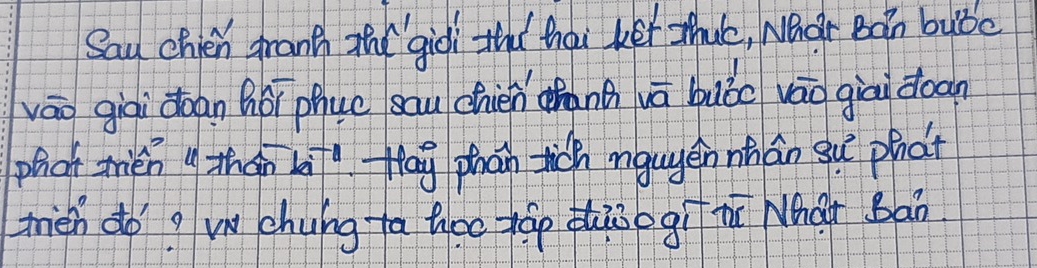 Sau chiến tranh thế giới thứ hai kết thúc, Nhật Bản bước
vào giai đoạn hồi phục sau chiến tranh và bước vào giai đoạn
phát triển "thần kì". Hãy phân tích nguyên nhân sự phát
triển đó? VN chúng ta học tập được gì từ Nhật Bản